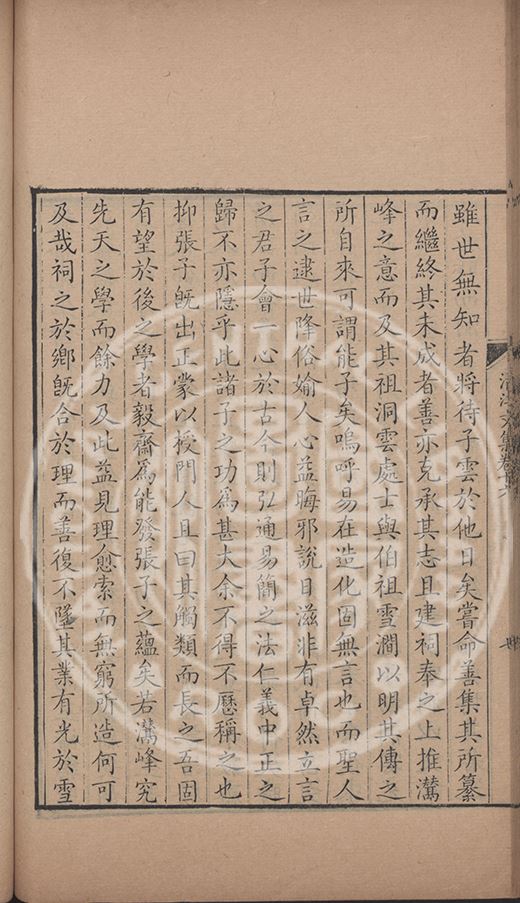 雖世無知者將待子雲於他日矣嘗命善集其所纂
而繼終其未成者善亦克承其志且建祠奉之上推灊
峰之意而及其祖洞雲處士與伯祖雪澗以明其傳之
所自來可謂能子矣嗚呼易在造化固無言也而聖人
言之逮世降俗婾人心益晦邪說日滋非有卓然立言
之君子會一心於古今則弘通易簡之法仁義中正之
歸不亦隱乎此諸子之功為甚大余不得不歷稱之也
抑張子旣出正蒙以授門人且曰其觸類而長之吾固
有望於後之學者毅齋為能發張子之蘊矣若灊峰究
先天之學而餘力及此益見理愈索而無窮所造何可
及哉祠之於鄉旣合於理而善復不墜其業有光於雪